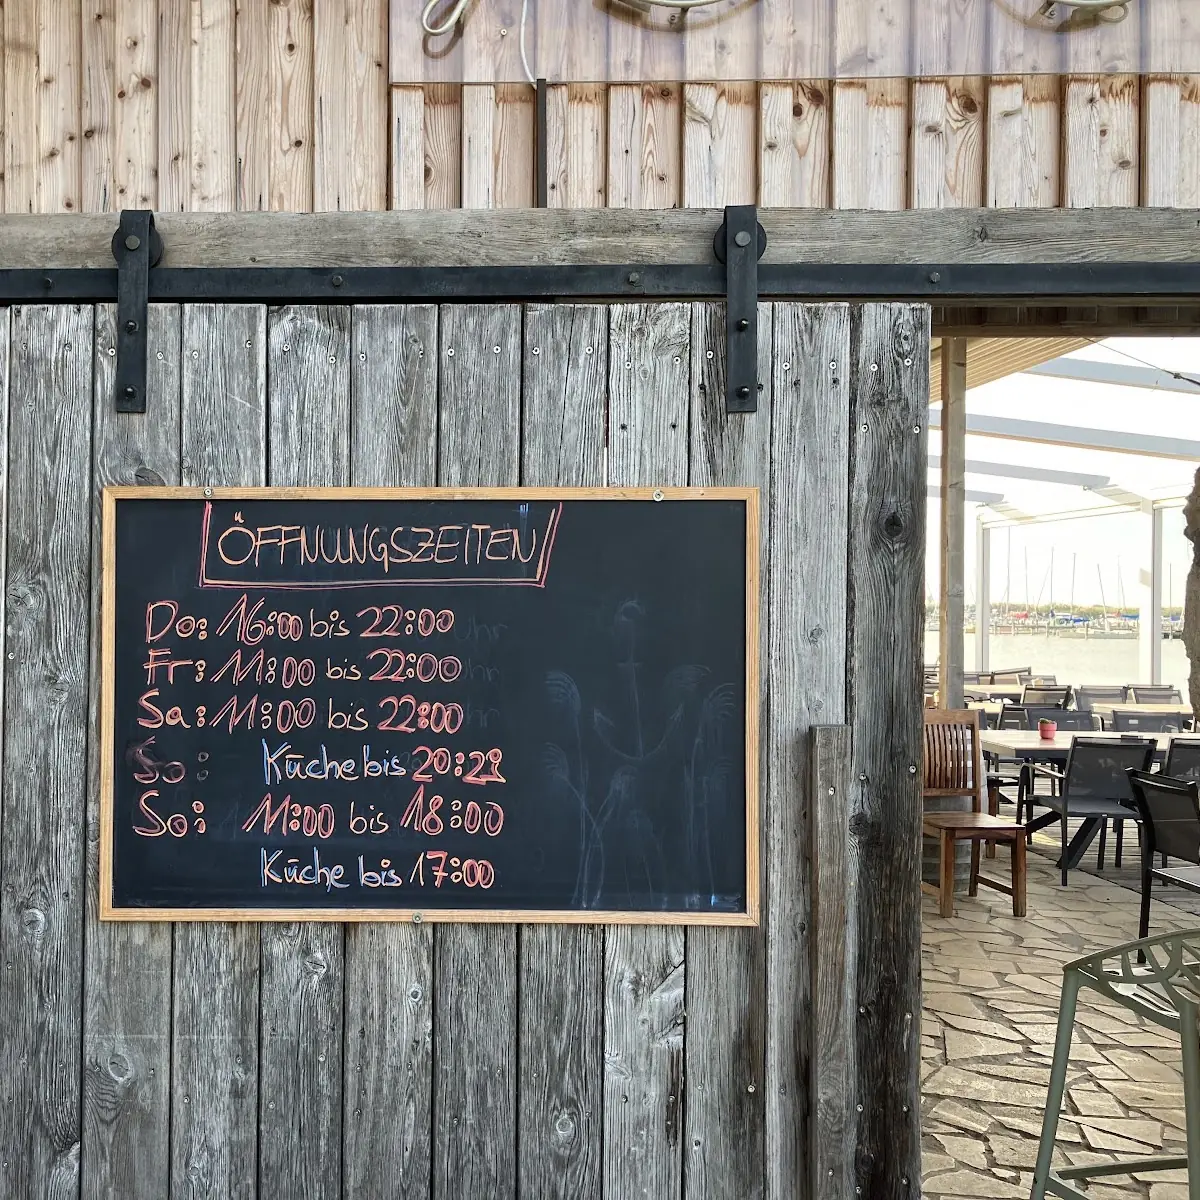 ÖFFNUNGSZEITEN
Do: 16:00 bis 22:00 Uhr
Fr: 11:00 bis 22:00
Sa: 11:00 bis 22:00
So: Küche bis 20:29
So: 11:00 bis 18:00
Küche bis 17:00